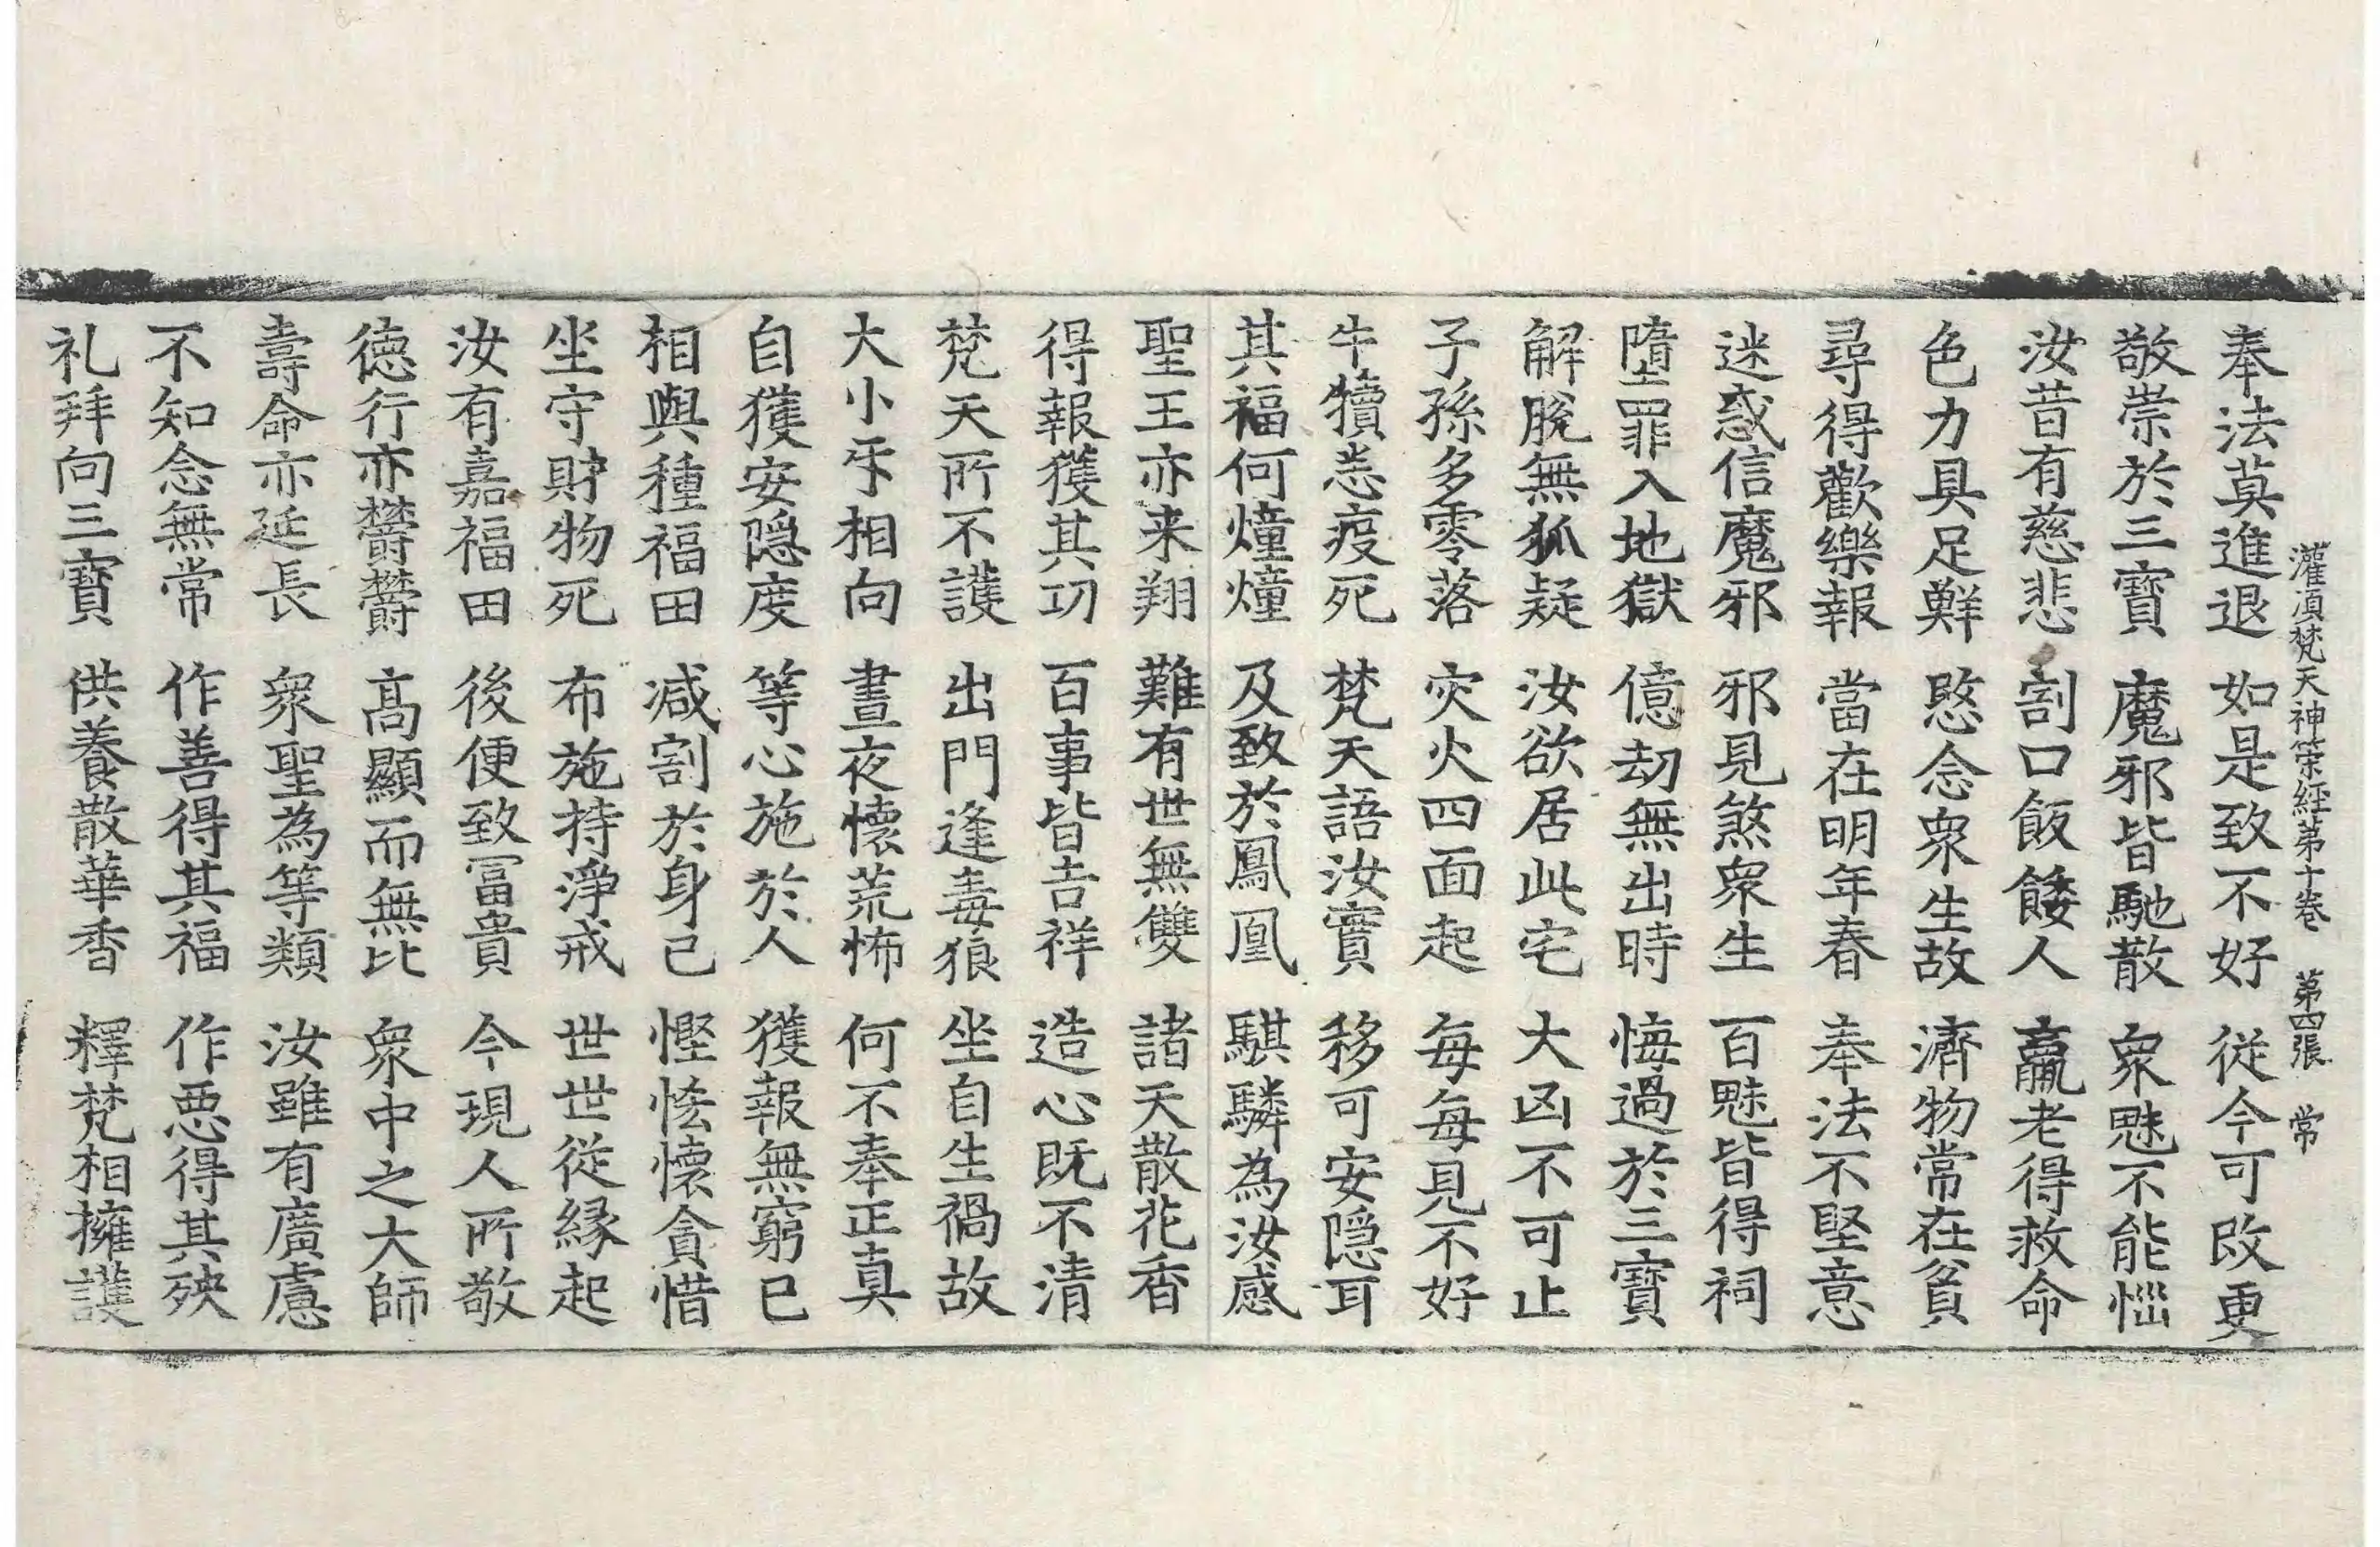 灌頂梵天神策経第十卷　第四張　常
奉法莫進退　如是致不好　従今可改更
敬崇於三寶　魔邪皆馳散　衆魅不能惱
汝昔有慈悲　割口飯餧人　羸老得救命
色力具足鮮　愍念衆生故　濟物常在貧
尋得歡樂報　當在明年春　奉法不堅意
迷惑信魔邪　邪見煞衆生　百魅皆得祠
墮罪入地獄　億劫無出時　悔過於三寶
解脫無狐疑　汝欲居此宅　大凶不可止
子孫多零落　灾火四面起　每每見不好
牛犢恙疫死　梵天語汝實　移可安隱耳
其福何煄煄　及致於鳳凰　騏驎為汝感
聖王亦来翔　難有世無雙　諸天散花香
得報獲其功　百事皆吉祥　造心既不清
梵天所不護　出門逢毒狼　坐自生禍故
大小牙相向　晝夜懷荒怖　何不奉正真
自獲安隱度　等心施於人　獲報無窮已
相與種福田　減割於身己　慳悋懷貪惜
坐守財物死　布施持淨戒　世世從緣起
汝有嘉福田　後便致冨貴　今現人所敬
德行亦欝欝　高顯而無比　衆中之大師
壽命亦延長　衆聖為等類　汝雖有廣慮
不知念無常　作善得其福　作惡得其殃
礼拜向三寶　供養散華香　釋梵相擁護